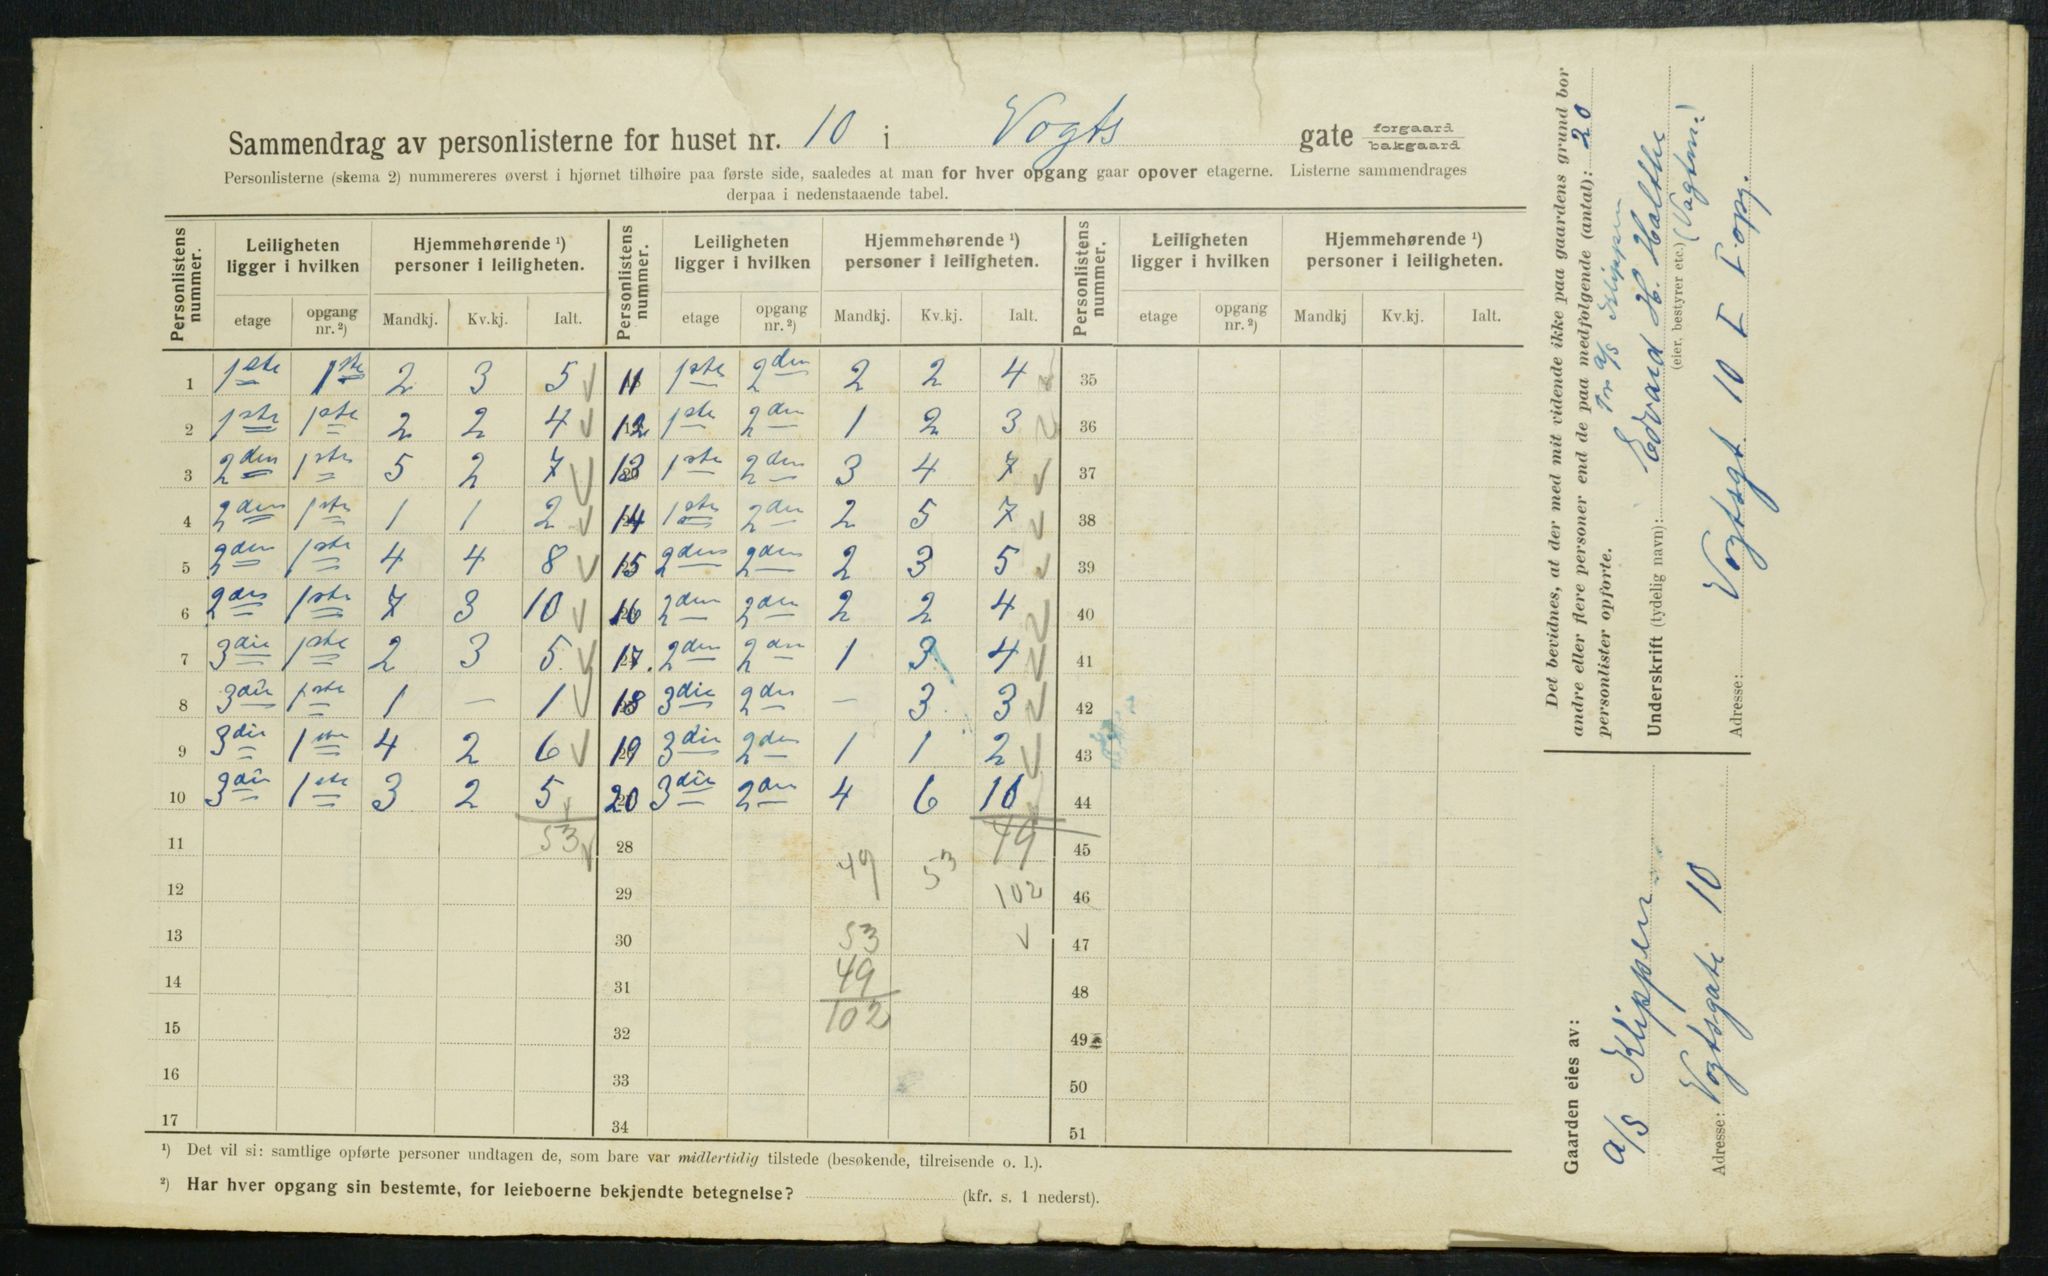 Sammendrag av personlisterne for huset nr. 10 i Vogts gate forgaard bakgaard
Personlisterne (skema 2) nummereres øverst i hjørnet tilhøire paa første side, saaledes at man for hver opgang gaar opover etagerne. Listerne sammendrages
derpaa i nedenstaaende tabel.
Personlistens nummer. Leiligheten ligger i hvilken Hjemmehørende ¹) personer i leiligheten. Personlistens nummer. Leiligheten ligger i hvilken Hjemmehørende ¹) personer i leiligheten. Personlistens nummer. Leiligheten ligger i hvilken Hjemmehørende ¹) personer i leiligheten.
etage opgang nr. ²) Mandkj. Kv.kj. Ialt. etage opgang nr. ²) Mandkj. Kv.kj. Ialt. etage opgang nr. ²) Mandkj Kv.kj. Ialt.
1 1ste 1ste 2 3 5 11 1ste 2den 2 2 4 35
2 1ste 1ste 2 2 4 12 1ste 2den 1 2 3 36
3 2den 1ste 5 2 7 13 1ste 2den 3 4 7 37
4 2den 1ste 1 1 2 14 1ste 2den 2 5 7 38
5 2den 1ste 4 4 8 15 2den 2den 2 3 5 39
6 2den 1ste 7 3 10 16 2den 2den 2 2 4 40
7 3die 1ste 2 3 5 17. 2den 2den 1 3 4 41
8 3die 1ste 1 — 1 18 3die 2den — 3 3 42
9 3die 1ste 4 2 6 19 3die 2den 1 1 2 43
10 3die 1ste 3 2 5 20 3die 2den 4 6 10 44
11 53 28 49 45
12 29 49 53 102 46
13 30 53 47
14 31 49 48
15 32 102 49
16 33 50
17 34 51
¹) Det vil si: samtlige opførte personer undtagen de, som bare var midlertidig tilstede (besøkende, tilreisende o. l.).
²) Har hver opgang sin bestemte, for leieboerne bekjendte betegnelse? (kfr. s. 1 nederst).
Det bevidnes, at der med mit vidende ikke paa gaardens grund bor
andre eller flere personer end de paa medfølgende (antal): 20
personlister opførte. for a/s Klippen
Underskrift (tydelig navn): Edvard H. Holthe
(eier, bestyrer etc.)
Adresse: Vogtsgt 10 I I opg.
Gaarden eies av:
a/s Klippen
Adresse: Vogtsgate 10